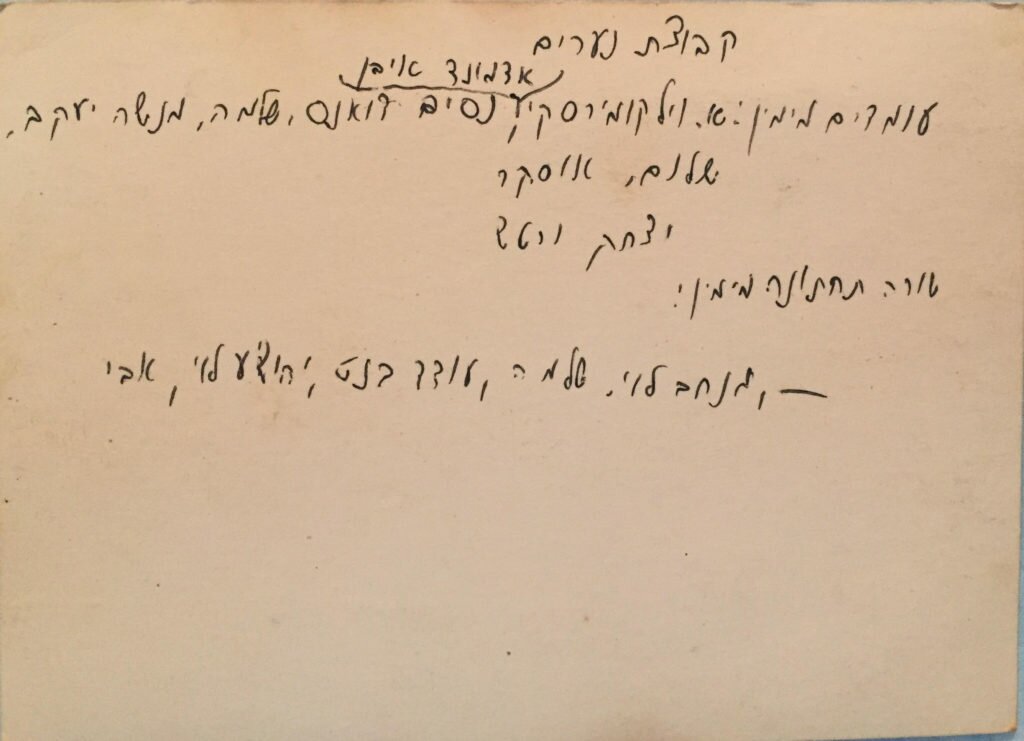 קבוצת נערים
אדמונד אויבן
עומדים מימין: א. וילקומירסקי, נסים דואנס, שלמה, מנשה יעקב,
שלום, אוסקר
יצחק ורטש
שורה תחתונה מימין:
— , לוי. שלמה, עודד בנט, יהושע לוי, אבי